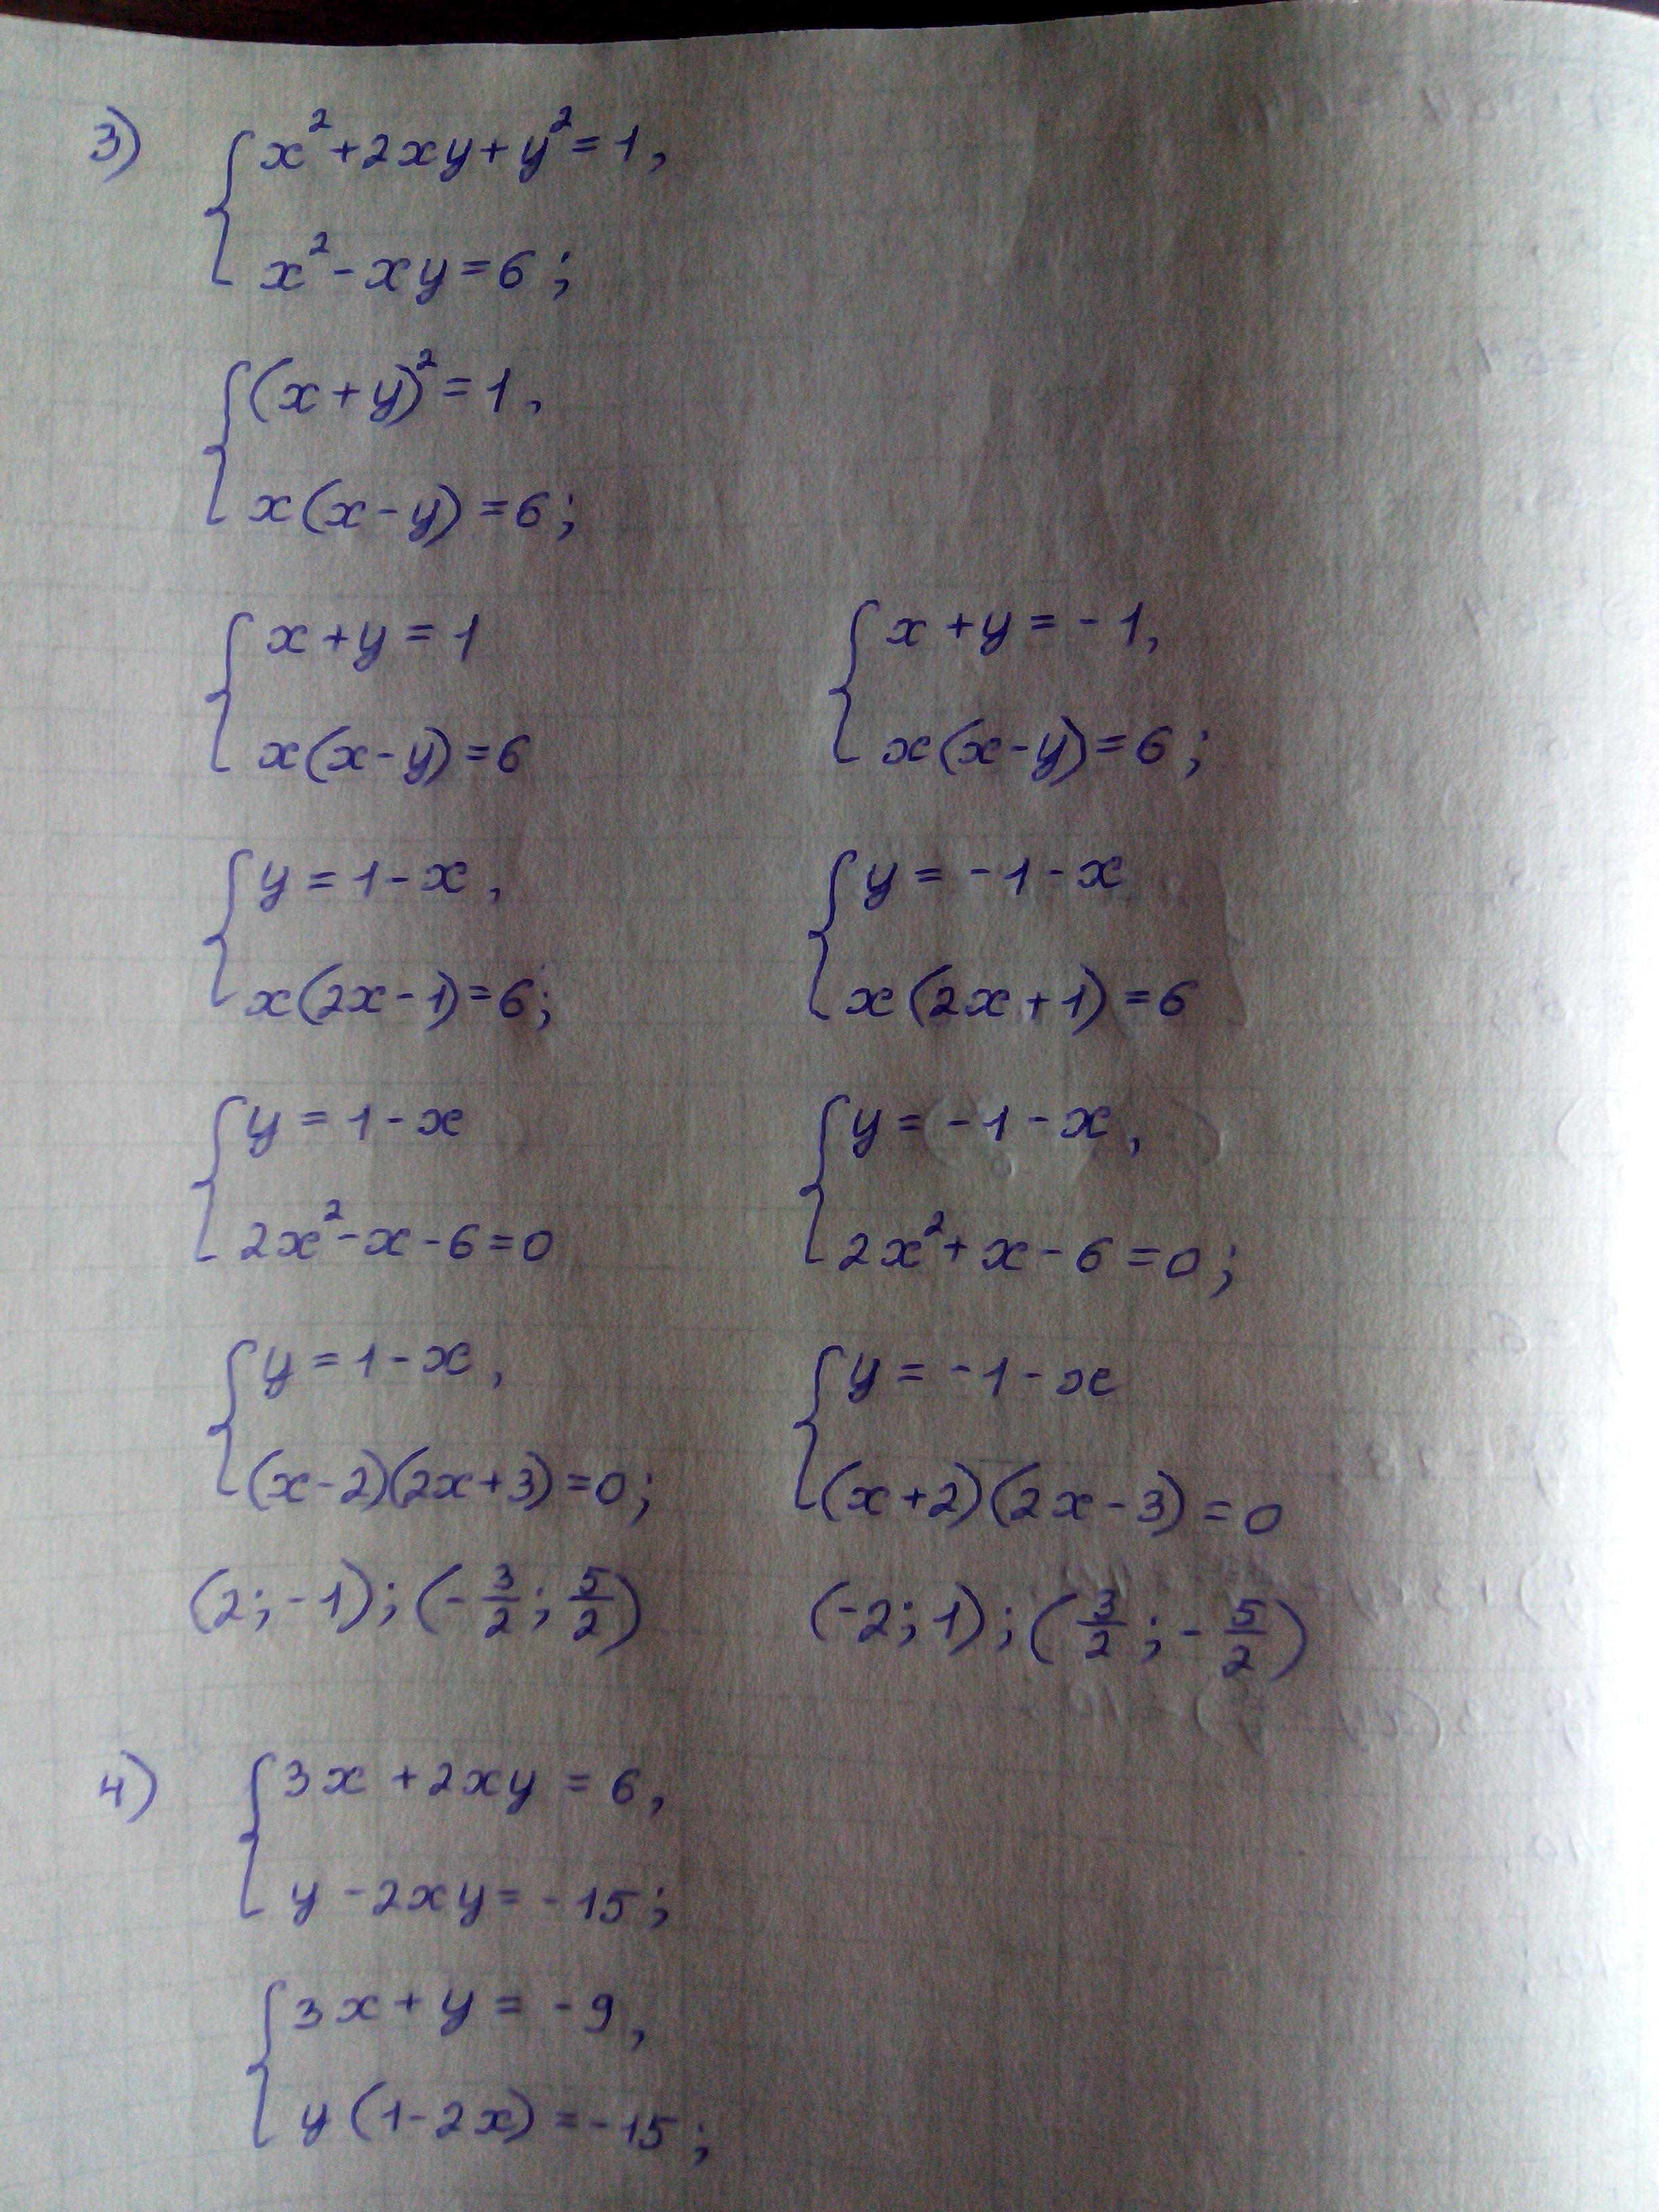 3) { x² + 2xy + y² = 1,
x² - xy = 6;
{ (x + y)² = 1,
x(x - y) = 6;
{ x + y = 1
x(x - y) = 6
{ x + y = -1,
x(x - y) = 6;
{ y = 1 - x,
x(2x - 1) = 6;
{ y = -1 - x
x(2x + 1) = 6
{ y = 1 - x
2x² - x - 6 = 0
{ y = -1 - x,
2x² + x - 6 = 0;
{ y = 1 - x,
(x - 2)(2x + 3) = 0;
{ y = -1 - x
(x + 2)(2x - 3) = 0
(2; -1); (-3/2; 5/2)
(-2; 1); (3/2; -5/2)
4) { 3x + 2xy = 6,
y - 2xy = -15;
{ 3x + y = -9,
y(1 - 2x) = -15;